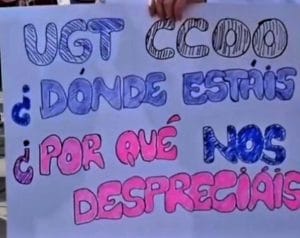 UGT CCOO
¿DÓNDE ESTÁIS
¿POR QUÉ NOS
DESPRECIÁIS